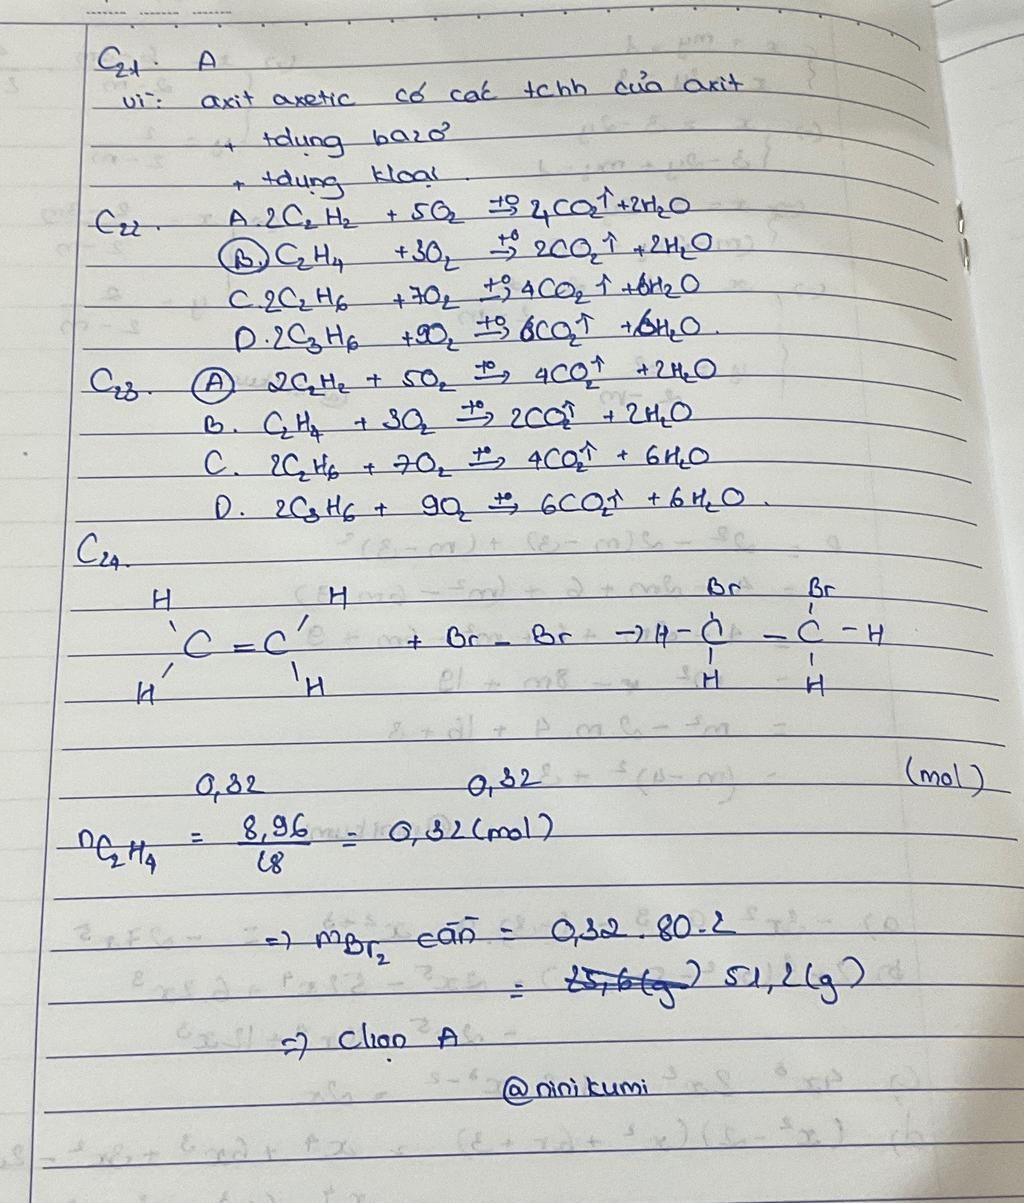 C21. A
vì: axit axetic có các tchh của axit
+ tdụng bazơ
+ tdụng kloại.
C22. A. 2C₂H₂ + 5O₂ →t° 4CO₂↑ + 2H₂O
B. C₂H₄ + 3O₂ →t° 2CO₂↑ + 2H₂O
C. 2C₂H₆ + 7O₂ →t° 4CO₂↑ + 6H₂O
D. 2C₃H₆ + 9O₂ →t° 6CO₂↑ + 6H₂O.
C23. A 2C₂H₂ + 5O₂ →t° 4CO₂↑ + 2H₂O
B. C₂H₄ + 3O₂ →t° 2CO₂↑ + 2H₂O
C. 2C₂H₆ + 7O₂ →t° 4CO₂↑ + 6H₂O
D. 2C₃H₆ + 9O₂ →t° 6CO₂↑ + 6H₂O.
C24.
H H Br Br
C = C + Br - Br → H - C - C - H
H H H H
0,32 0,32 (mol)
nC₂H₄ = 8,96/28 = 0,32 (mol)
=> mBr₂ cần = 0,32 . 80 . 2
= 25,6(g) 51,2(g)
=> Chọn A
@ninikumi